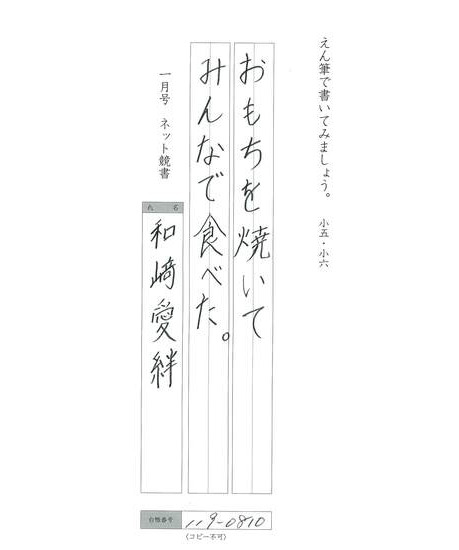 えん筆で書いてみましょう。 小五・小六
おもちを焼いて
みんなで食べた。
一月号 ネット競書
氏名
和崎愛絆
台帳番号 119-0810
(コピー不可)